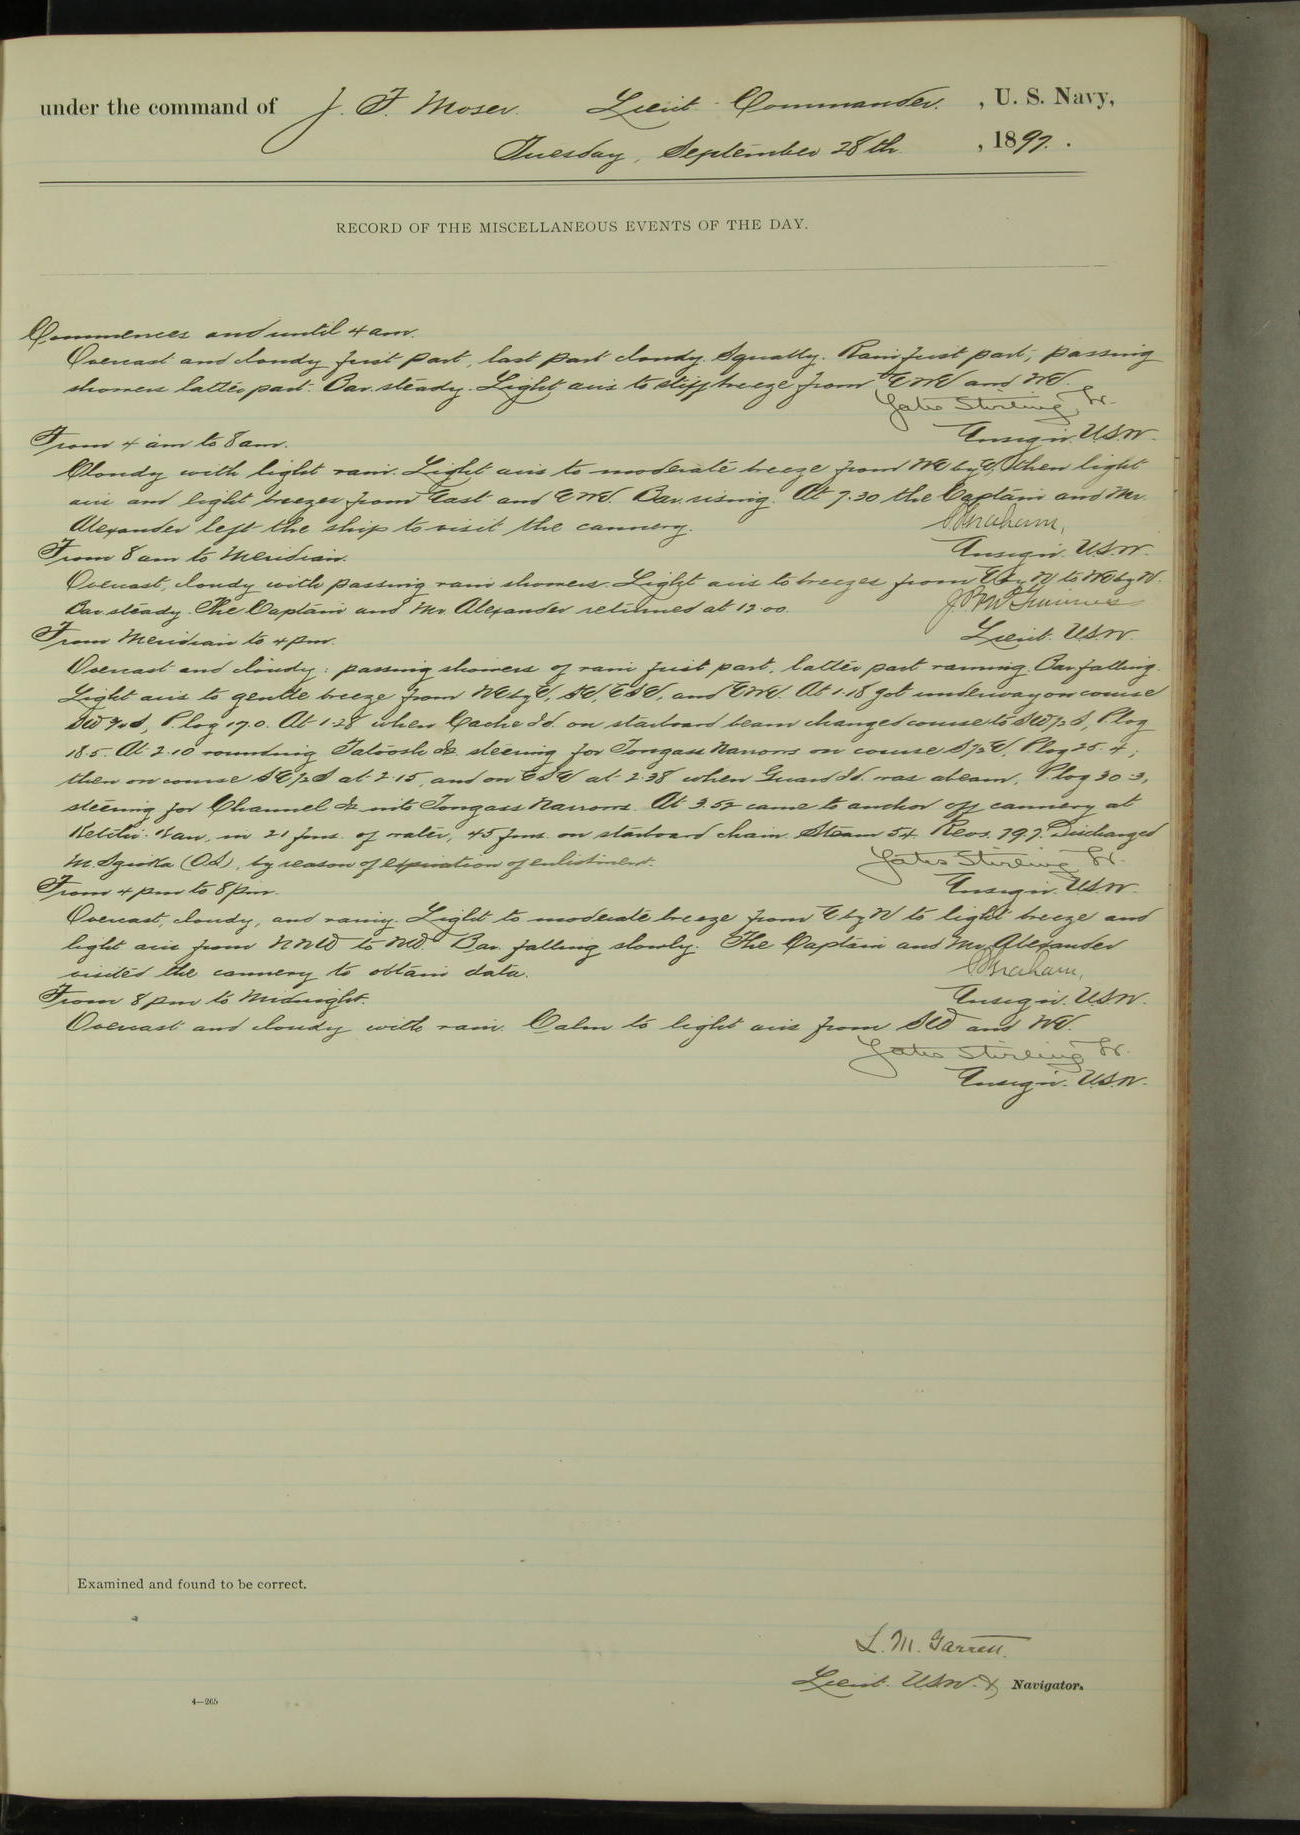 under the command of J. F. Moser Lieut. Commander, U. S. Navy,
Tuesday, September 28th, 1897.
RECORD OF THE MISCELLANEOUS EVENTS OF THE DAY.
Commences and until 4 am.
Overcast and cloudy first part, last part cloudy. Squally. Rain first part, passing
showers latter part. Bar. steady. Light airs to stiff breeze from ENE and NE.
Yates Stirling, Jr.
Ensign. U.S.N.
From 4 am to 8 am.
Cloudy with light rain. Light airs to moderate breeze from NE by E, then light
airs and light breezes from East and ENE. Bar. rising. At 7.30 the Captain and Mr.
Alexander left the ship to visit the cannery.
Graham,
Ensign. U.S.N.
From 8 am to Meridian.
Overcast, cloudy with passing rain showers. Light airs to breezes from E by N to NE by N.
Bar. steady. The Captain and Mr. Alexander returned at 12 00.
Lieut. U.S.N.
From Meridian to 4 pm.
Overcast and cloudy; passing showers of rain first part, latter part raining. Bar. falling.
Light airs to gentle breeze from NE by E, SE, ESE, and ENE. At 1.18 got underway on course
P. log 17.0. At 1.28 when Cache Id. on starboard beam changed course to SW ½ S, P. log
18.5. At 2.10 rounding Tatoosh Is. steering for Tongass Narrows on course S ½ E, P. log 25.4;
then on course SE ½ S at 2.15, and on ESE at 2.38 when Guard Id. was abeam, P. log 30.3,
steering for Channel Is. into Tongass Narrows. At 3.52 came to anchor off cannery at
Ketchi-Kan, in 21 fms. of water, 45 fms. on starboard chain. Steam 54. Revs. 79.7. Discharged
M. (O.S), by reason of expiration of enlistment.
Yates Stirling Jr.
Ensign. U.S.N.
From 4 pm to 8 pm.
Overcast, cloudy, and rainy. Light to moderate breeze from E by N to light breeze and
light airs from NNW to NW. Bar. falling slowly. The Captain and Mr. Alexander
visited the cannery to obtain data.
Graham,
Ensign. U.S.N.
From 8 pm to Midnight.
Overcast and cloudy with rain. Calm to light airs from SW and NE.
Yates Stirling Jr.
Ensign. U.S.N.
Examined and found to be correct.
L. M. Garrett.
Lieut. U.S.N. & Navigator.
4—265